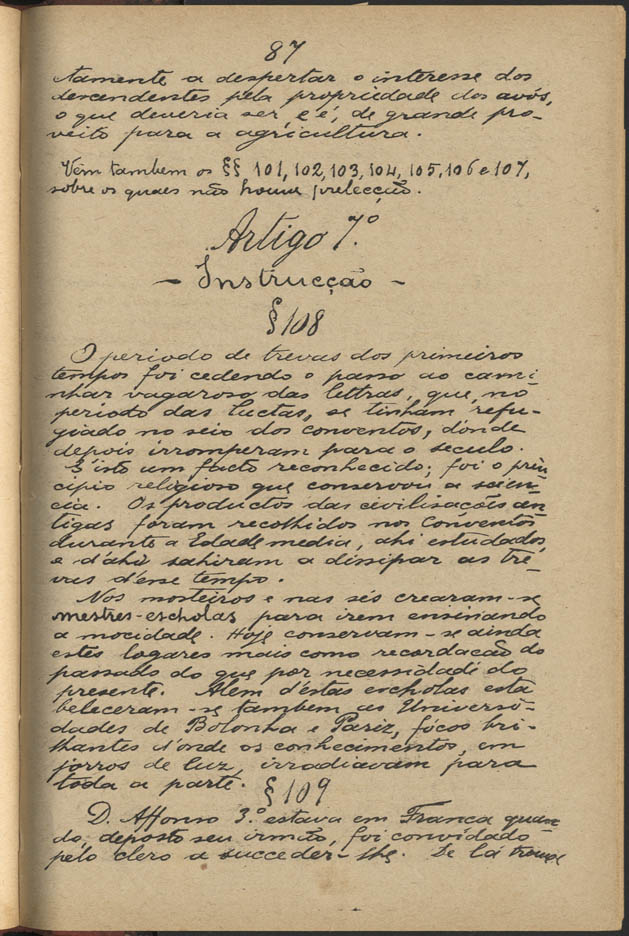 87
tamente a despertar o interesse dos
descendentes pela propriedade dos avós,
o que deveria ser, e é, de grande pro-
veito para a agricultura.
Vêm tambem os §§ 101, 102, 103, 104, 105, 106 e 107,
sobre os quaes não houve prelecção.
Artigo 7.º
- Instrucção -
§ 108
O periodo de trevas dos primeiros
tempos foi cedendo o passo ao cami-
nhar vagaroso das lettras, que, no
periodo das luctas, se tinham refu-
giado no seio dos conventos, d'onde
depois irromperam para o seculo.
É isto um facto reconhecido; foi o prin
cipio religioso que conservou a scien-
cia. Os productos das civilisações an
tigas foram recolhidos nos Conventos
durante a Edade media, ahi estudados,
e d'ahi sahiram a dissipar as tre-
vas d'esse tempo.
Nos mosteiros e nas sés crearam-se
mestres-escholas para irem ensinando
a mocidade. Hoje conservam-se ainda
estes logares mais como recordação do
passado do que por necessidade do
presente. Alem d'estas escholas esta
beleceram-se tambem as Universi-
dades de Bolonha e Pariz, fócos bri-
lhantes d'onde os conhecimentos, em
jorros de luz, irradiavam para
toda a parte.
§ 109
D. Affonso 3.º estava em Franca quan
do, deposto seu irmão, foi convidado
pelo clero a succeder-lhe. De lá trouxe